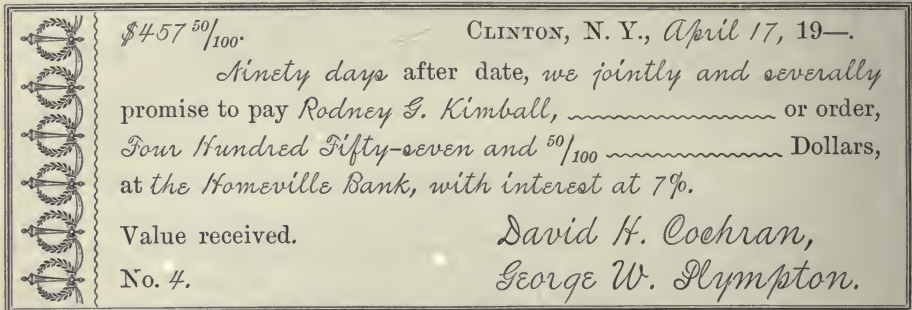 $457 50/100. CLINTON, N. Y., April 17, 19—.
Ninety days after date, we jointly and severally
promise to pay Rodney G. Kimball, or order,
Four Hundred Fifty-seven and 50/100 Dollars,
at the Homeville Bank, with interest at 7%.
Value received. David H. Cochran,
No. 4. George W. Plympton.